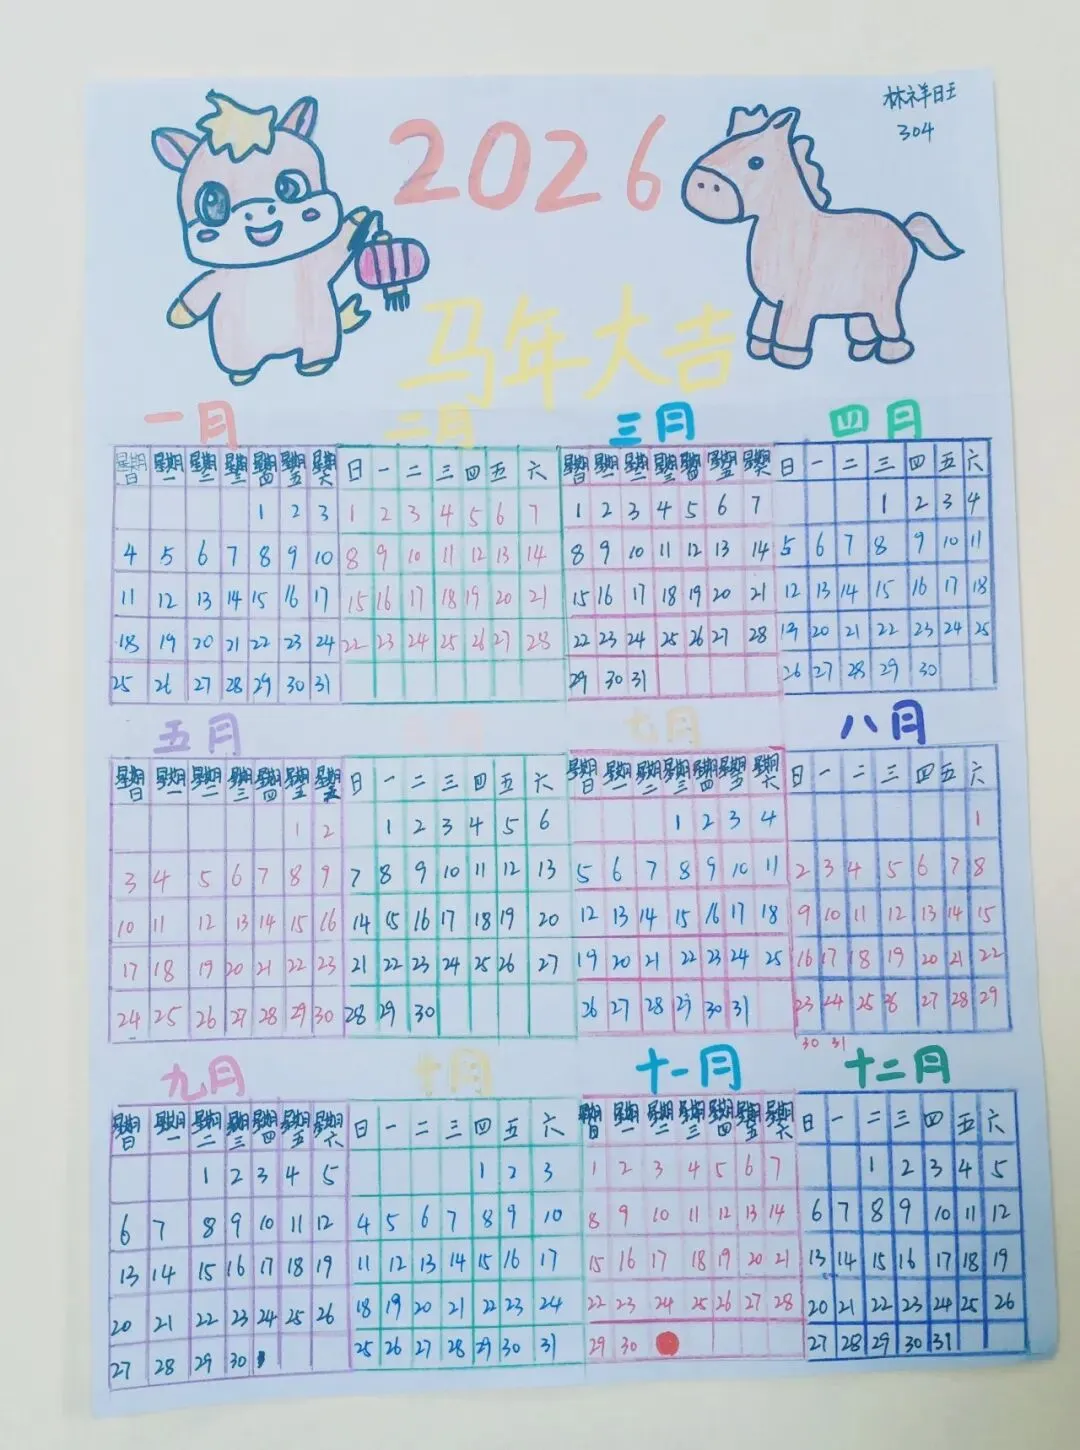 林祥旺
304
2026
马年大吉
一月
星期日 星期一 星期二 星期三 星期四 星期五 星期六
1 2 3
4 5 6 7 8 9 10
11 12 13 14 15 16 17
18 19 20 21 22 23 24
25 26 27 28 29 30 31
二月
日 一 二 三 四 五 六
1 2 3 4 5 6 7
8 9 10 11 12 13 14
15 16 17 18 19 20 21
22 23 24 25 26 27 28
三月
星期日 星期一 星期二 星期三 星期四 星期五 星期六
1 2 3 4 5 6 7
8 9 10 11 12 13 14
15 16 17 18 19 20 21
22 23 24 25 26 27 28
29 30 31
四月
日 一 二 三 四 五 六
1 2 3 4
5 6 7 8 9 10 11
12 13 14 15 16 17 18
19 20 21 22 23 24 25
26 27 28 29 30
五月
星期日 星期一 星期二 星期三 星期四 星期五 星期六
1 2
3 4 5 6 7 8 9
10 11 12 13 14 15 16
17 18 19 20 21 22 23
24 25 26 27 28 29 30
日 一 二 三 四 五 六
1 2 3 4 5 6
7 8 9 10 11 12 13
14 15 16 17 18 19 20
21 22 23 24 25 26 27
28 29 30
月
星期日 星期一 星期二 星期三 星期四 星期五 星期六
1 2 3 4
5 6 7 8 9 10 11
12 13 14 15 16 17 18
19 20 21 22 23 24 25
26 27 28 29 30 31
八月
日 一 二 三 四 五 六
1
2 3 4 5 6 7 8
9 10 11 12 13 14 15
16 17 18 19 20 21 22
23 24 25 26 27 28 29
30 31
九月
星期日 星期一 星期二 星期三 星期四 星期五 星期六
1 2 3 4 5
6 7 8 9 10 11 12
13 14 15 16 17 18 19
20 21 22 23 24 25 26
27 28 29 30
十月
日 一 二 三 四 五 六
1 2 3
4 5 6 7 8 9 10
11 12 13 14 15 16 17
18 19 20 21 22 23 24
25 26 27 28 29 30 31
十一月
星期日 星期一 星期二 星期三 星期四 星期五 星期六
1 2 3 4 5 6 7
8 9 10 11 12 13 14
15 16 17 18 19 20 21
22 23 24 25 26 27 28
29 30
十二月
日 一 二 三 四 五 六
1 2 3 4 5
6 7 8 9 10 11 12
13 14 15 16 17 18 19
20 21 22 23 24 25 26
27 28 29 30 31